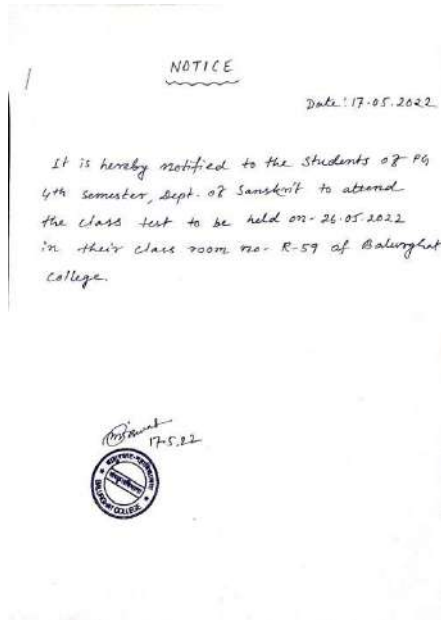 NOTICE
Date: 17.05.2022
It is hereby notified to the Students of PG
4th semester, Dept. of Sanskrit to attend
the class test to be held on- 26.05.2022
in their class room no- R-59 of Balurghat
College.
17.5.22
BALURGHAT COLLEGE